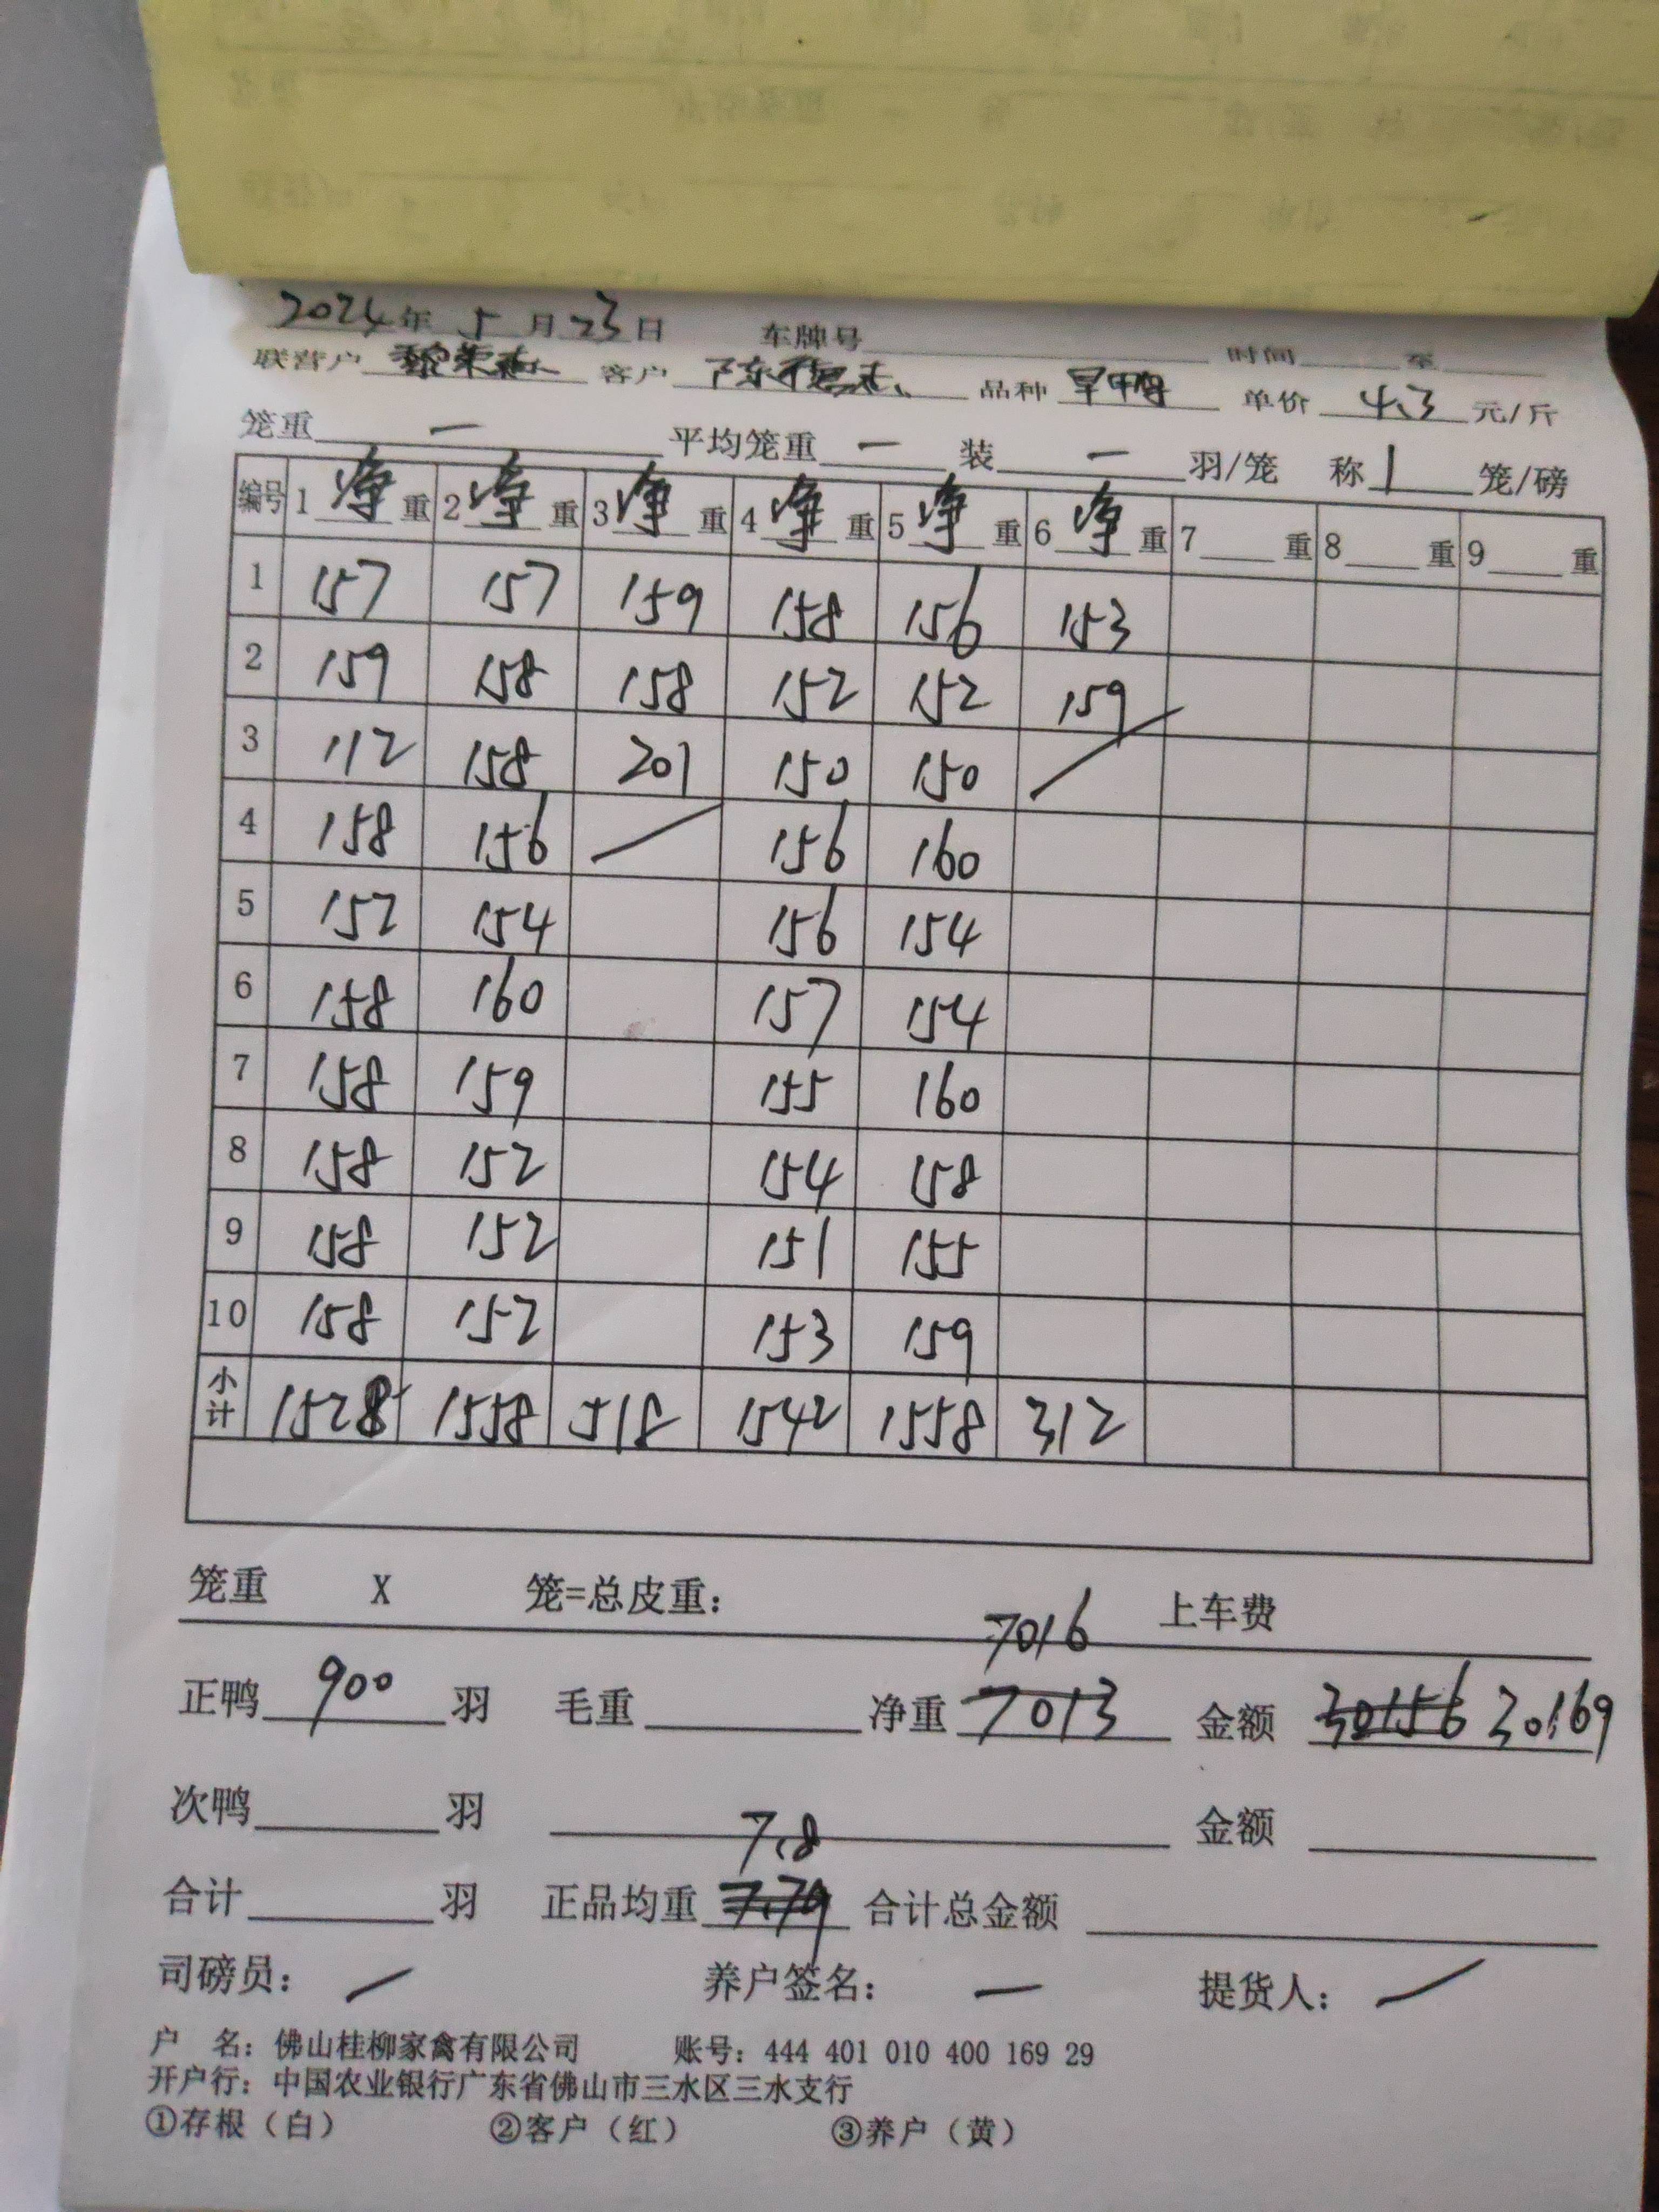 2024年 5月23日 车牌号 时间 至
联营户 黎荣志 客户 陈德志 品种 旱鸭 单价 4.3 元/斤
笼重 一 平均笼重 一 装 一 羽/笼 称 1 笼/磅
编号 1 净 重 2 净 重 3 净 重 4 净 重 5 净 重 6 净 重 7 重 8 重 9 重
1 157 157 159 158 156 153
2 159 158 158 152 152 159
3 112 158 201 150 150 /
4 158 156 / 156 160
5 152 154 156 154
6 158 160 157 154
7 158 159 155 160
8 158 152 154 158
9 158 152 151 155
10 158 152 153 159
小计 1528 1558 518 1542 1558 312
笼重 X 笼=总皮重: 上车费
7016
正鸭 900 羽 毛重 净重 7013 金额 30156 30169
次鸭 羽 金额
7.8
合计 羽 正品均重 7.79 合计总金额
司磅员: / 养户签名: 一 提货人: /
户 名: 佛山桂柳家禽有限公司 账号: 444 401 010 400 169 29
开户行: 中国农业银行广东省佛山市三水区三水支行
①存根（白） ②客户（红） ③养户（黄）